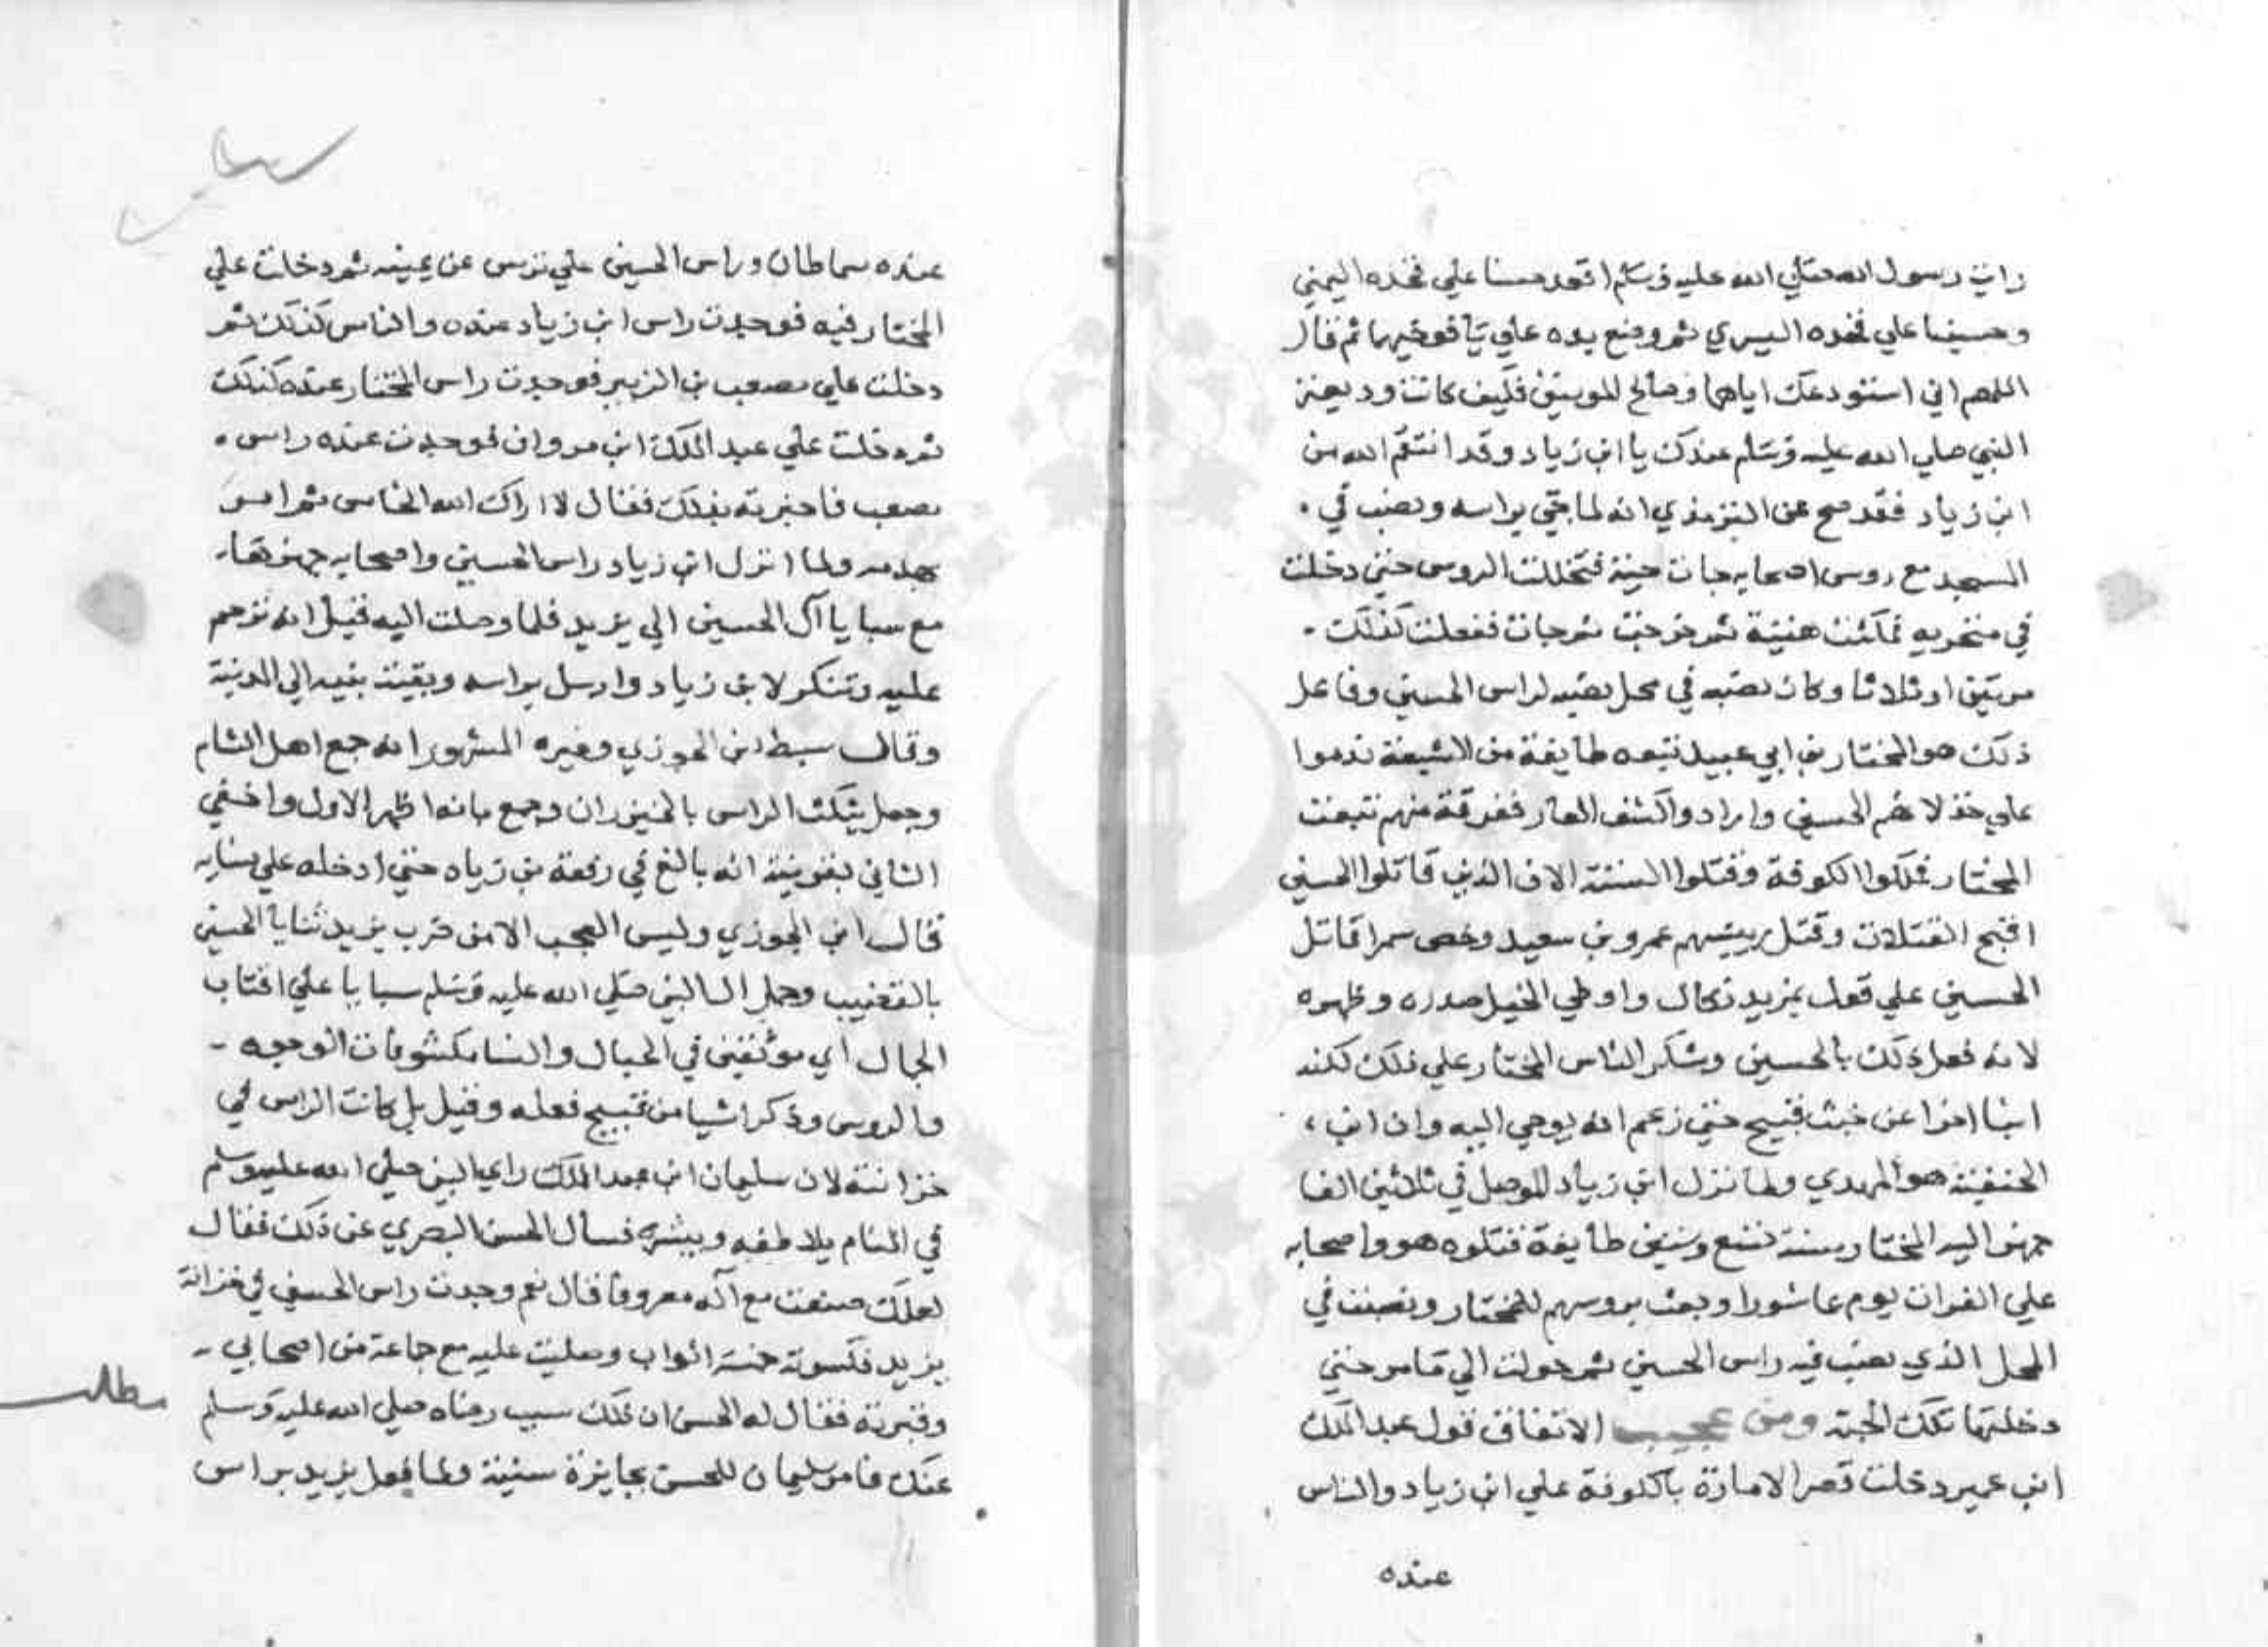 رايت رسول الله صلي الله عليه وسلم اقعد حسنا علي فخذه اليمني
وحسينا علي فخذه اليسري ثم وضع يده علي يافوخيهما ثم قال
اللهم اني استودعك اياهما وصالح المومنين فكيف كانت وديعة
النبي صلي الله عليه وسلم عندك يا ابن زياد وقد انتقم الله من
ابن زياد فقد صح عن الترمذي انه لما جي براسه ونصب في
المسجد مع روس اصحابه جات حية فتخللت الروس حتي دخلت
في منخريه فمكثت هنية ثم خرجت ثم جات ففعلت كذلك
مرتين او ثلاثا وكان نصبه في محل نصبه لراس الحسين وفاعل
ذلك هو المختار بن ابي عبيد تتبعه طايفة من الشيعة ندموا
علي خذلانهم الحسين وارادوا كشف العار ففرقة منهم تتبعت
المختار فملكوا الكوفة وقتلوا الستة الاف الذين قاتلوا الحسين
اقبح القتلات وقتل رييسهم عمرو بن سعيد وخص سمرا قاتل
الحسين علي قول بمزيد نكال واوطي الخيل صدره وظهره
لانه فعل ذلك بالحسين وشكر الناس المختار علي ذلك لكنه
انبا اخرا عن خبث قبيح حتي زعم انه يوحي اليه وان ابن
الحنفية هو المهدي ولما نزل ابن زياد الموصل في ثلاثين الفا
جهز اليه المختار سنة تسع وستين طايفة قتلوه هو واصحابه
علي الفرات يوم عاشورا وبعث بروسهم للمختار ونصبت في
المحل الذي نصب فيه راس الحسين ثم حولت الي ما مر حتي
دخلتها تلك الحية ومن عجيب الاتفاق قول عبد الملك
ابن عمير دخلت قصر الامارة بالكوفة علي ابن زياد والناس
عنده
عنده سماطان وراس الحسين علي ترس عن يمينه ثم دخلت علي
المختار فيه فوجدت راس ابن زياد عنده والناس كذلك ثم
دخلت علي مصعب بن الزبير فوجدت راس المختار عنده كذلك
ثم دخلت علي عبد الملك ابن مروان فوجدت عنده راس
مصعب فاخبرته بذلك فقال لا اراك الله الخامس ثم امر
بهدمه ولما انزل ابن زياد راس الحسين واصحابه جهزها
مع سبايا آل الحسين الي يزيد فلما وصلت اليه قيل انه ترحم
عليه وتنكر لابن زياد وارسل براسه وبقيت بنيه الي المدينة
وقال سبط ابن الجوزي وغيره المشهور انه جمع اهل الشام
وجعل ينكث الراس بالخيزران وجمع بانه اظهر الاول واخفي
الثاني بقرينة انه بالغ في رفعة بن زياد حتي ادخله علي نسايه
قال ابن الجوزي وليس العجب الا من ضرب يزيد ثنايا الحسين
بالقضيب وحمل ال النبي صلي الله عليه وسلم سبايا علي اقتاب
الجمال اي موثقين في الحبال والنسا مكشوفات الوجوه
والروس وذكر اشيا من قبيح فعله وقيل بل كانت الراس في
خزانته لان سليمان ابن عبد الملك راي النبي صلي الله عليه وسلم
في المنام يلاطفه ويبشره فسال الحسن البصري عن ذلك فقال
لعلك صنعت مع آله معروفا قال نعم وجدت راس الحسين في خزانة
يزيد فكسوته خمسة اثواب وصليت عليه مع جماعة من اصحابي
وقبرته فقال له الحسن ان ذلك سبب رضاه صلي الله عليه وسلم
مطلب
عنك فامر سليمان للحسن بجايزة سنية ولما فعل يزيد براس